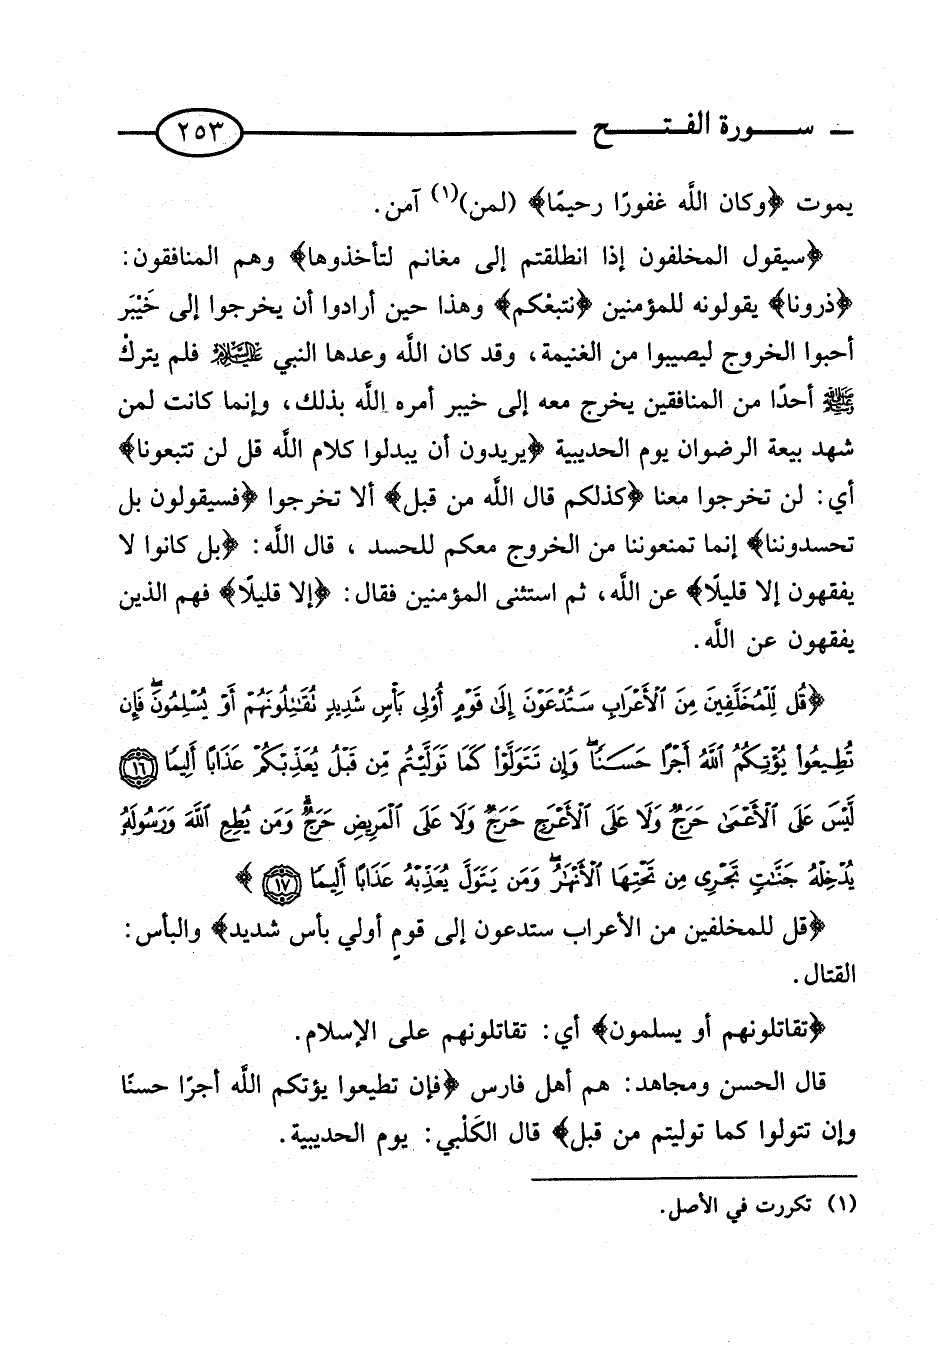 سورة الفتح ٢٥٣
يموت ﴿وكان اللَّه غفورًا رحيمًا﴾ (لمن)(١) آمن.
﴿سيقول المخلفون إذا انطلقتم إلى مغانم لتأخذوها﴾ وهم المنافقون:
﴿ذرونا﴾ يقولونه للمؤمنين ﴿نتبعْكم﴾ وهذا حين أرادوا أن يخرجوا إلى خَيْبَر
أحبوا الخروج ليصيبوا من الغنيمة، وقد كان اللَّه وعدها النبي عليه السلام فلم يتركْ
ﷺ أحدًا من المنافقين يخرج معه إلى خيبر أمره اللَّه بذلك، وإنما كانت لمن
شهد بيعة الرضوان يوم الحديبية ﴿يريدون أن يبدلوا كلام اللَّه قل لن تتبعونا﴾
أي: لن تخرجوا معنا ﴿كذلكم قال اللَّه من قبل﴾ ألا تخرجوا ﴿فسيقولون بل
تحسدوننا﴾ إنما تمنعوننا من الخروج معكم للحسد ، قال اللَّه: ﴿بل كانوا لا
يفقهون إلا قليلًا﴾ عن اللَّه، ثم استثنى المؤمنين فقال: ﴿إلا قليلًا﴾ فهم الذين
يفقهون عن اللَّه.
﴿قُل لِّلْمُخَلَّفِينَ مِنَ ٱلْأَعْرَابِ سَتُدْعَوْنَ إِلَىٰ قَوْمٍ أُو۟لِى بَأْسٍ شَدِيدٍ تُقَـٰتِلُونَهُمْ أَوْ يُسْلِمُونَ ۖ فَإِن
تُطِيعُوا۟ يُؤْتِكُمُ ٱللَّهُ أَجْرًا حَسَنًا ۖ وَإِن تَتَوَلَّوْا۟ كَمَا تَوَلَّيْتُم مِّن قَبْلُ يُعَذِّبْكُمْ عَذَابًا أَلِيمًا ١٦
لَّيْسَ عَلَى ٱلْأَعْمَىٰ حَرَجٌ وَلَا عَلَى ٱلْأَعْرَجِ حَرَجٌ وَلَا عَلَى ٱلْمَرِيضِ حَرَجٌ ۗ وَمَن يُطِعِ ٱللَّهَ وَرَسُولَهُۥ
يُدْخِلْهُ جَنَّـٰتٍ تَجْرِى مِن تَحْتِهَا ٱلْأَنْهَـٰرُ ۖ وَمَن يَتَوَلَّ يُعَذِّبْهُ عَذَابًا أَلِيمًا ١٧﴾
﴿قل للمخلفين من الأعراب ستدعون إلى قومٍ أولي بأس شديد﴾ والبأس:
القتال.
﴿تقاتلونهم أو يسلمون﴾ أي: تقاتلونهم على الإسلام.
قال الحسن ومجاهد: هم أهل فارس ﴿فإن تطيعوا يؤتكم اللَّه أجرًا حسنًا
وإن تتولوا كما توليتم من قبل﴾ قال الكَلْبي: يوم الحديبية.
(١) تكررت في الأصل.